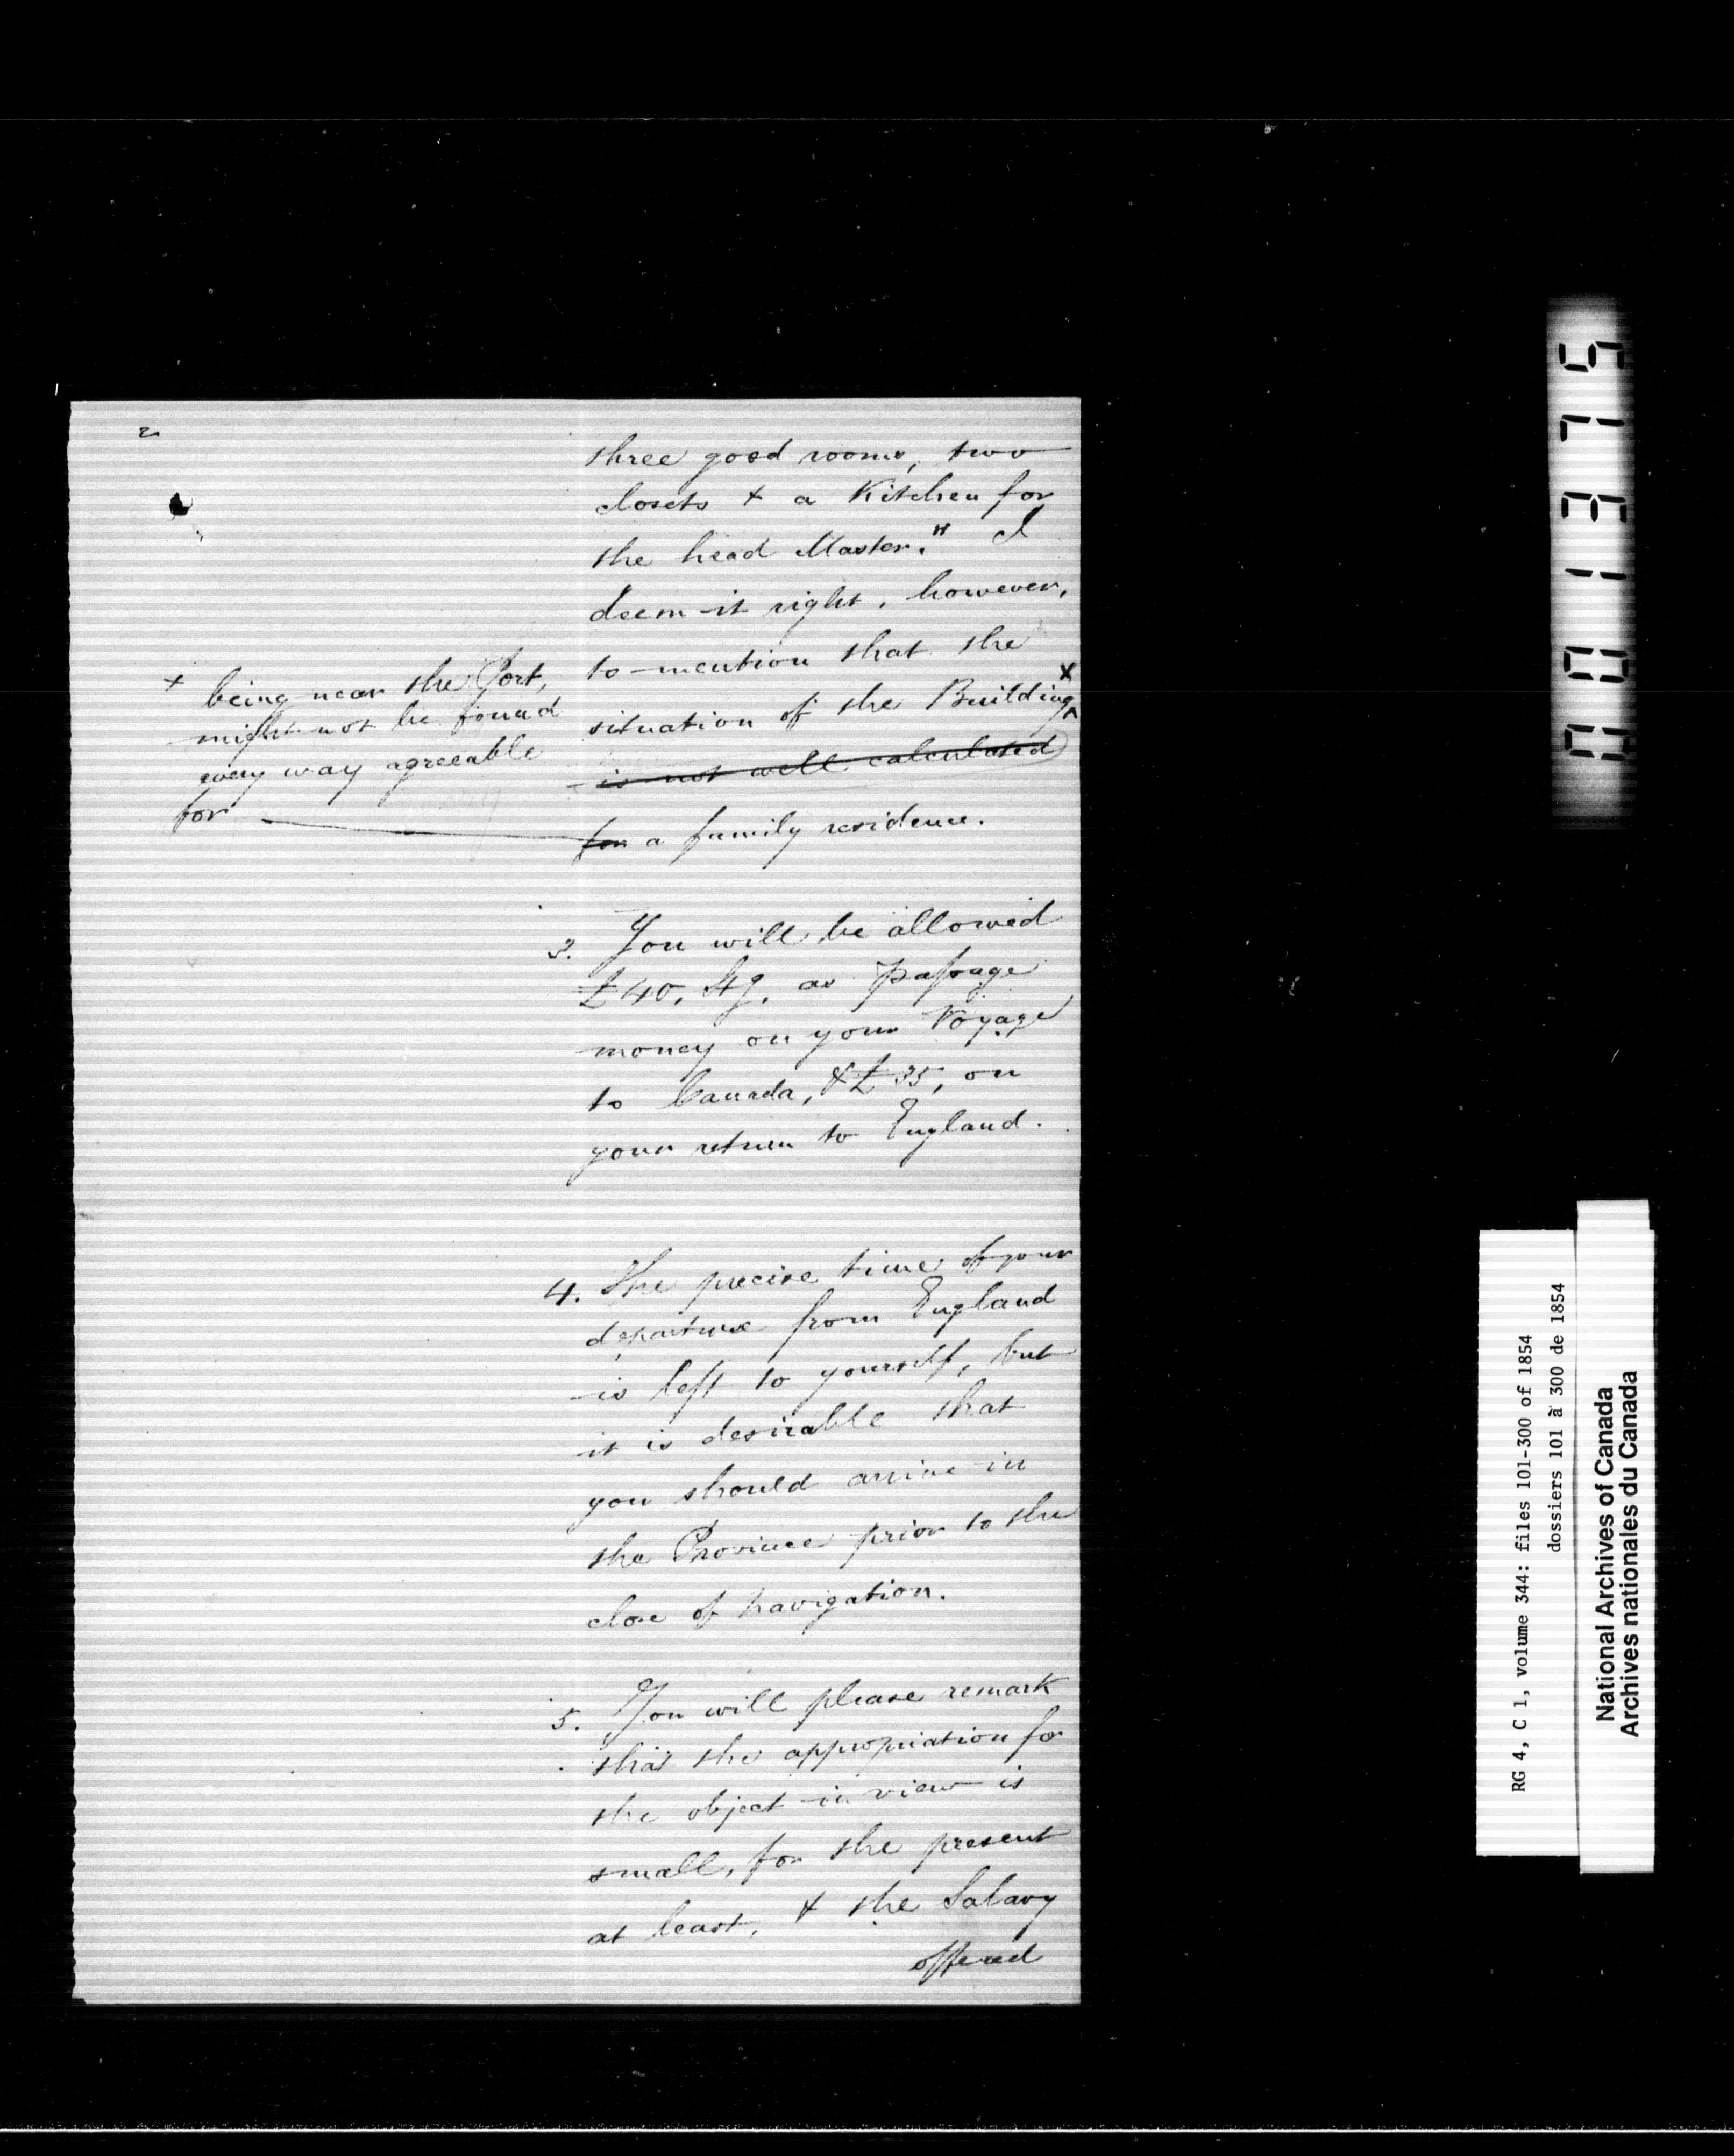 2
three good rooms, two
closets & a Kitchen for
the head Master." I
deem it right, however,
to mention that the
situation of the Building x
is not well calculated
for a family residence.
x being near the Port,
might not be found
every way agreeable
for
3. You will be allowed
£40, Stg. as passage
money on your Voyage
to Canada, & £35, on
your return to England.
4. The precise time of your
departure from England
is left to yourself, but
it is desirable that
you should arrive in
the Province prior to the
close of navigation.
5. You will please remark
that the appropriation for
the object in view is
small, for the present
at least, & the Salary
offered
001375
RG 4, C 1, volume 344: files 101-300 of 1854
dossiers 101 à 300 de 1854
National Archives of Canada
Archives nationales du Canada